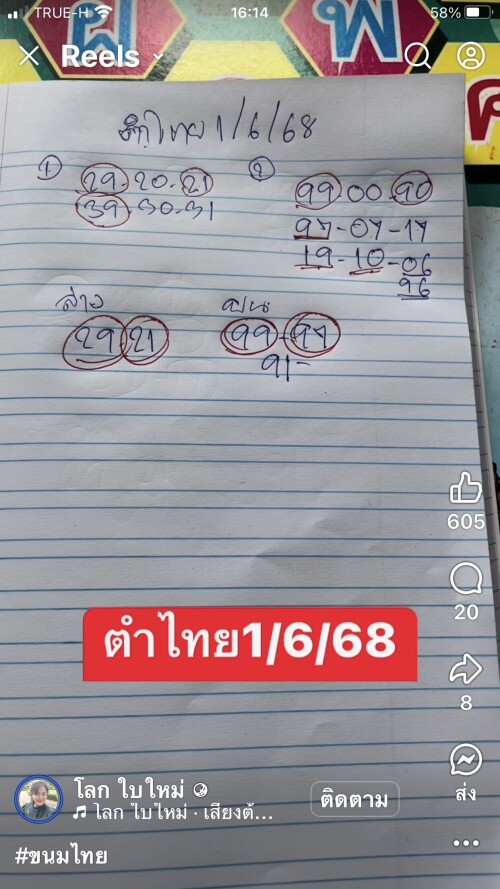 TRUE-H 16:14 58%
Reels
ผ พ ค
ตำไทย 1/6/68
1 29.20.21
39.30.31
2 99.00.90
97-07-17
19-10-06
96
ล่าง
29 21
บน
99-97
91-
605
20
8
ส่ง
ตำไทย1/6/68
โลก ใบใหม่
ติดตาม
โลก ใบใหม่ · เสียงต้...
#ขนมไทย